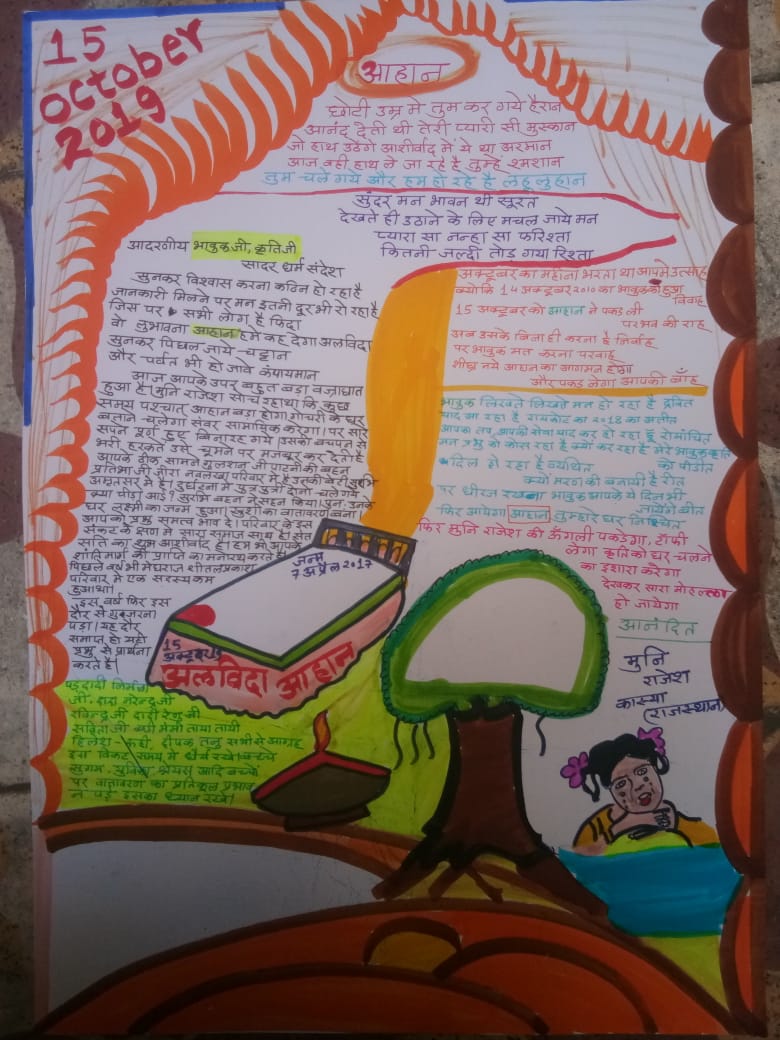 15
October
2019
आहान
छोटी उम्र मे तुम कर गये हैरान
आनंद देती थी तेरी प्यारी सी मुस्कान
जो हाथ उठेंगे आशीर्वाद में ये था अरमान
आज वही हाथ ले जा रहे है तुम्हे श्मशान
तुम चले गये और हम हो रहे है लहूलुहान
सुंदर मन भावन थी सूरत
देखते ही उठाने के लिए मचल जाये मन
प्यारा सा नन्हा सा फरिश्ता
कितनी जल्दी तोड़ गया रिश्ता
आदरणीय भावुकजी, कृतिजी
सादर धर्म संदेश
सुनकर विश्वास करना कठिन हो रहा है
जानकारी मिलने पर मन इतनी दूर भी रो रहा है
जिस पर सभी लोग है फिदा
वो लुभावना आहान हमे कह देगा अलविदा
सुनकर पिघल जाये चट्टान
और पर्वत भी हो जावे कंपायमान
आज आपके उपर बहुत बड़ा वज्राघात
हुआ है। मुनि राजेश सोच रहा था कि कुछ
समय पश्चात् आहान बड़ा होगा गोचरी के घर
बताने चलेगा सेवर सामायिक करेगा। पर सारे
सपने टूट गये उसका बचपन से
भरी हरकतें उसे चूमने पर मजबूर कर देती है
आपके ठीक सामने गुलशन जी पाटनी की बहन
प्रतिभा जी जीरा नवलखा परिवार मे है उसकी बेटी सुरभि
अमृतसर मे है। दुर्घटना में पुत्र पुत्री दोनो चले गये
क्या पीड़ा आई? सुरभि बहन ने सहन किया। पुनः उनके
घर लक्ष्मी का जन्म हुआ। खुशी का वातावरण बना।
आपको प्रभु समत्व भाव दे। परिवार के इस
संकट के क्षण मे सारा समाज साथ है। संत
सति का शुभ आशीर्वाद है। हम भी आपके
की प्राप्ति का मनोरथ करते है।
पिछले वर्ष भी मेघराज शीतल प्रकाश
परिवार मे एक सदस्य कम
हुआ था।
इस वर्ष फिर इस
दौर से गुजरना
पड़ा। यह दौर
समाप्त हो यही
प्रभु से प्रार्थना
करते है।
पड़दादी निर्मला
जी, दादा नरेन्द्र जी
रविन्द्र जी दादी रेनु जी
सविता जी ताया तायी
दीपक तनु सभी से आग्रह
इस विकट समय मे धैर्य रखे। बच्चे
सुगम, सुविधि, श्रेयसु आदि बच्चो
पर वातावरण का प्रतिकूल प्रभाव
न पड़े इसका ध्यान रखे।
अक्टूबर का महीना भरता था आपमे उत्साह
क्योकि 14 अक्टूबर 2010 का भावुक का हुआ
विवाह
15 अक्टूबर को आहान ने पकड़ ली
पर भव की राह
अब उसके बिना ही करना है निर्वाह
पर भावुक मत करना परवाह
शीघ्र नये आहान का आगमन होगा
और पकड़ लेगा आपकी बाँह
भावुक लिखते लिखते मन हो रहा है द्रवित
याद आ रहा है रायकोट का 2018 का अतीत
आपका तप, आपकी सेवा याद कर हो रहा हूँ रोमांचित
मन प्रभु को कोस रहा है क्यों कर रहा है मेरे भावुक कृति
को पीड़ित
दिल हो रहा है व्यथित
क्यो मरण की बनायी है रीत
पर धीरज रखना भावुक आपके ये दिन भी
जायेंगे बीत
फिर आयेगा आहान तुम्हारे घर निश्चित
फिर मुनि राजेश की ऊँगली पकड़ेगा, टॉफी
लेगा कृति को घर चलने
का इशारा करेगा
देखकर सारा मोहल्ला
हो जायेगा
आनंदित
मुनि
राजेश
कास्या
(राजस्थान)
जन्म
7 अप्रैल 2017
15
अक्टूबर
अलविदा आहान